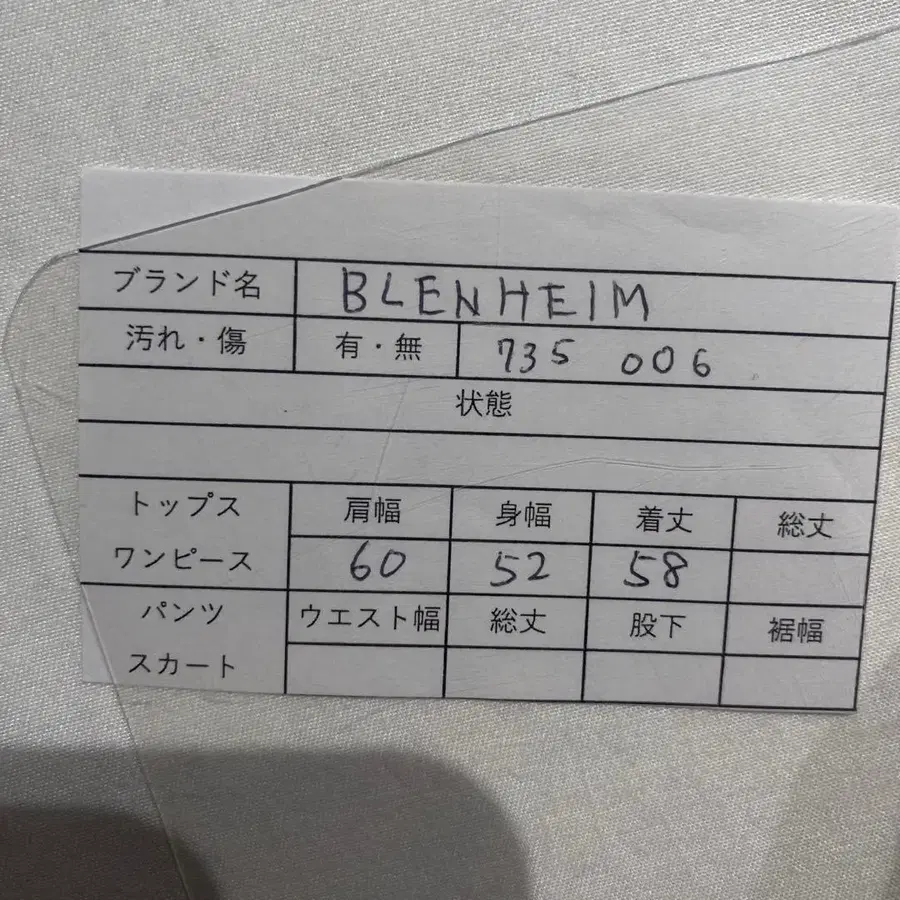 ブランド名 BLENHEIM
汚れ・傷 有・無 735 006
状態
トップス 肩幅 身幅 着丈 総丈
ワンピース 60 52 58
パンツ ウエスト幅 総丈 股下 裾幅
スカート